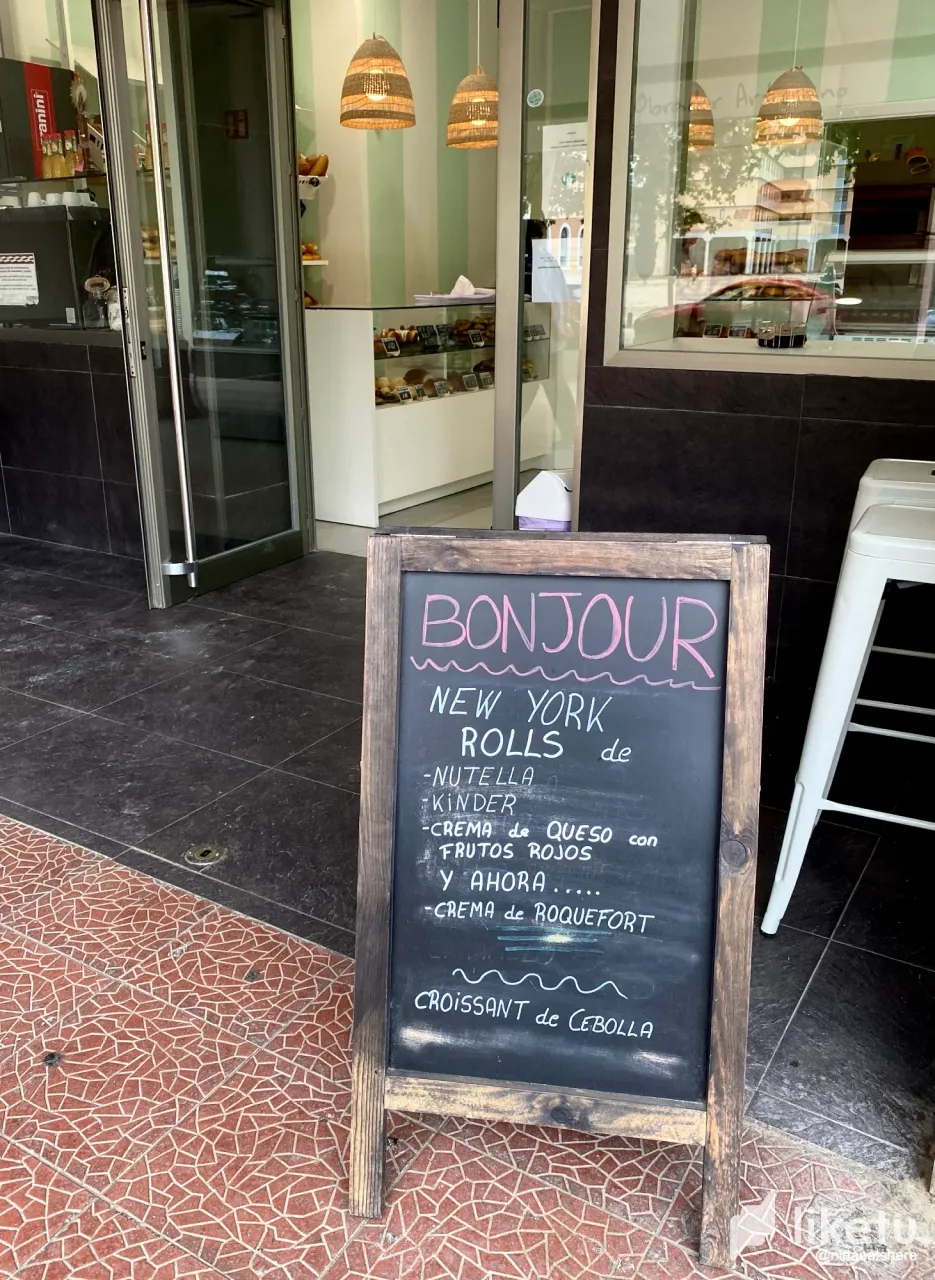 panini
BONJOUR
NEW YORK
ROLLS de
-NUTELLA
-KINDER
-CREMA de QUESO con
FRUTOS ROJOS
Y AHORA.....
-CREMA de ROQUEFORT
CROISSANT de CEBOLLA
liketu